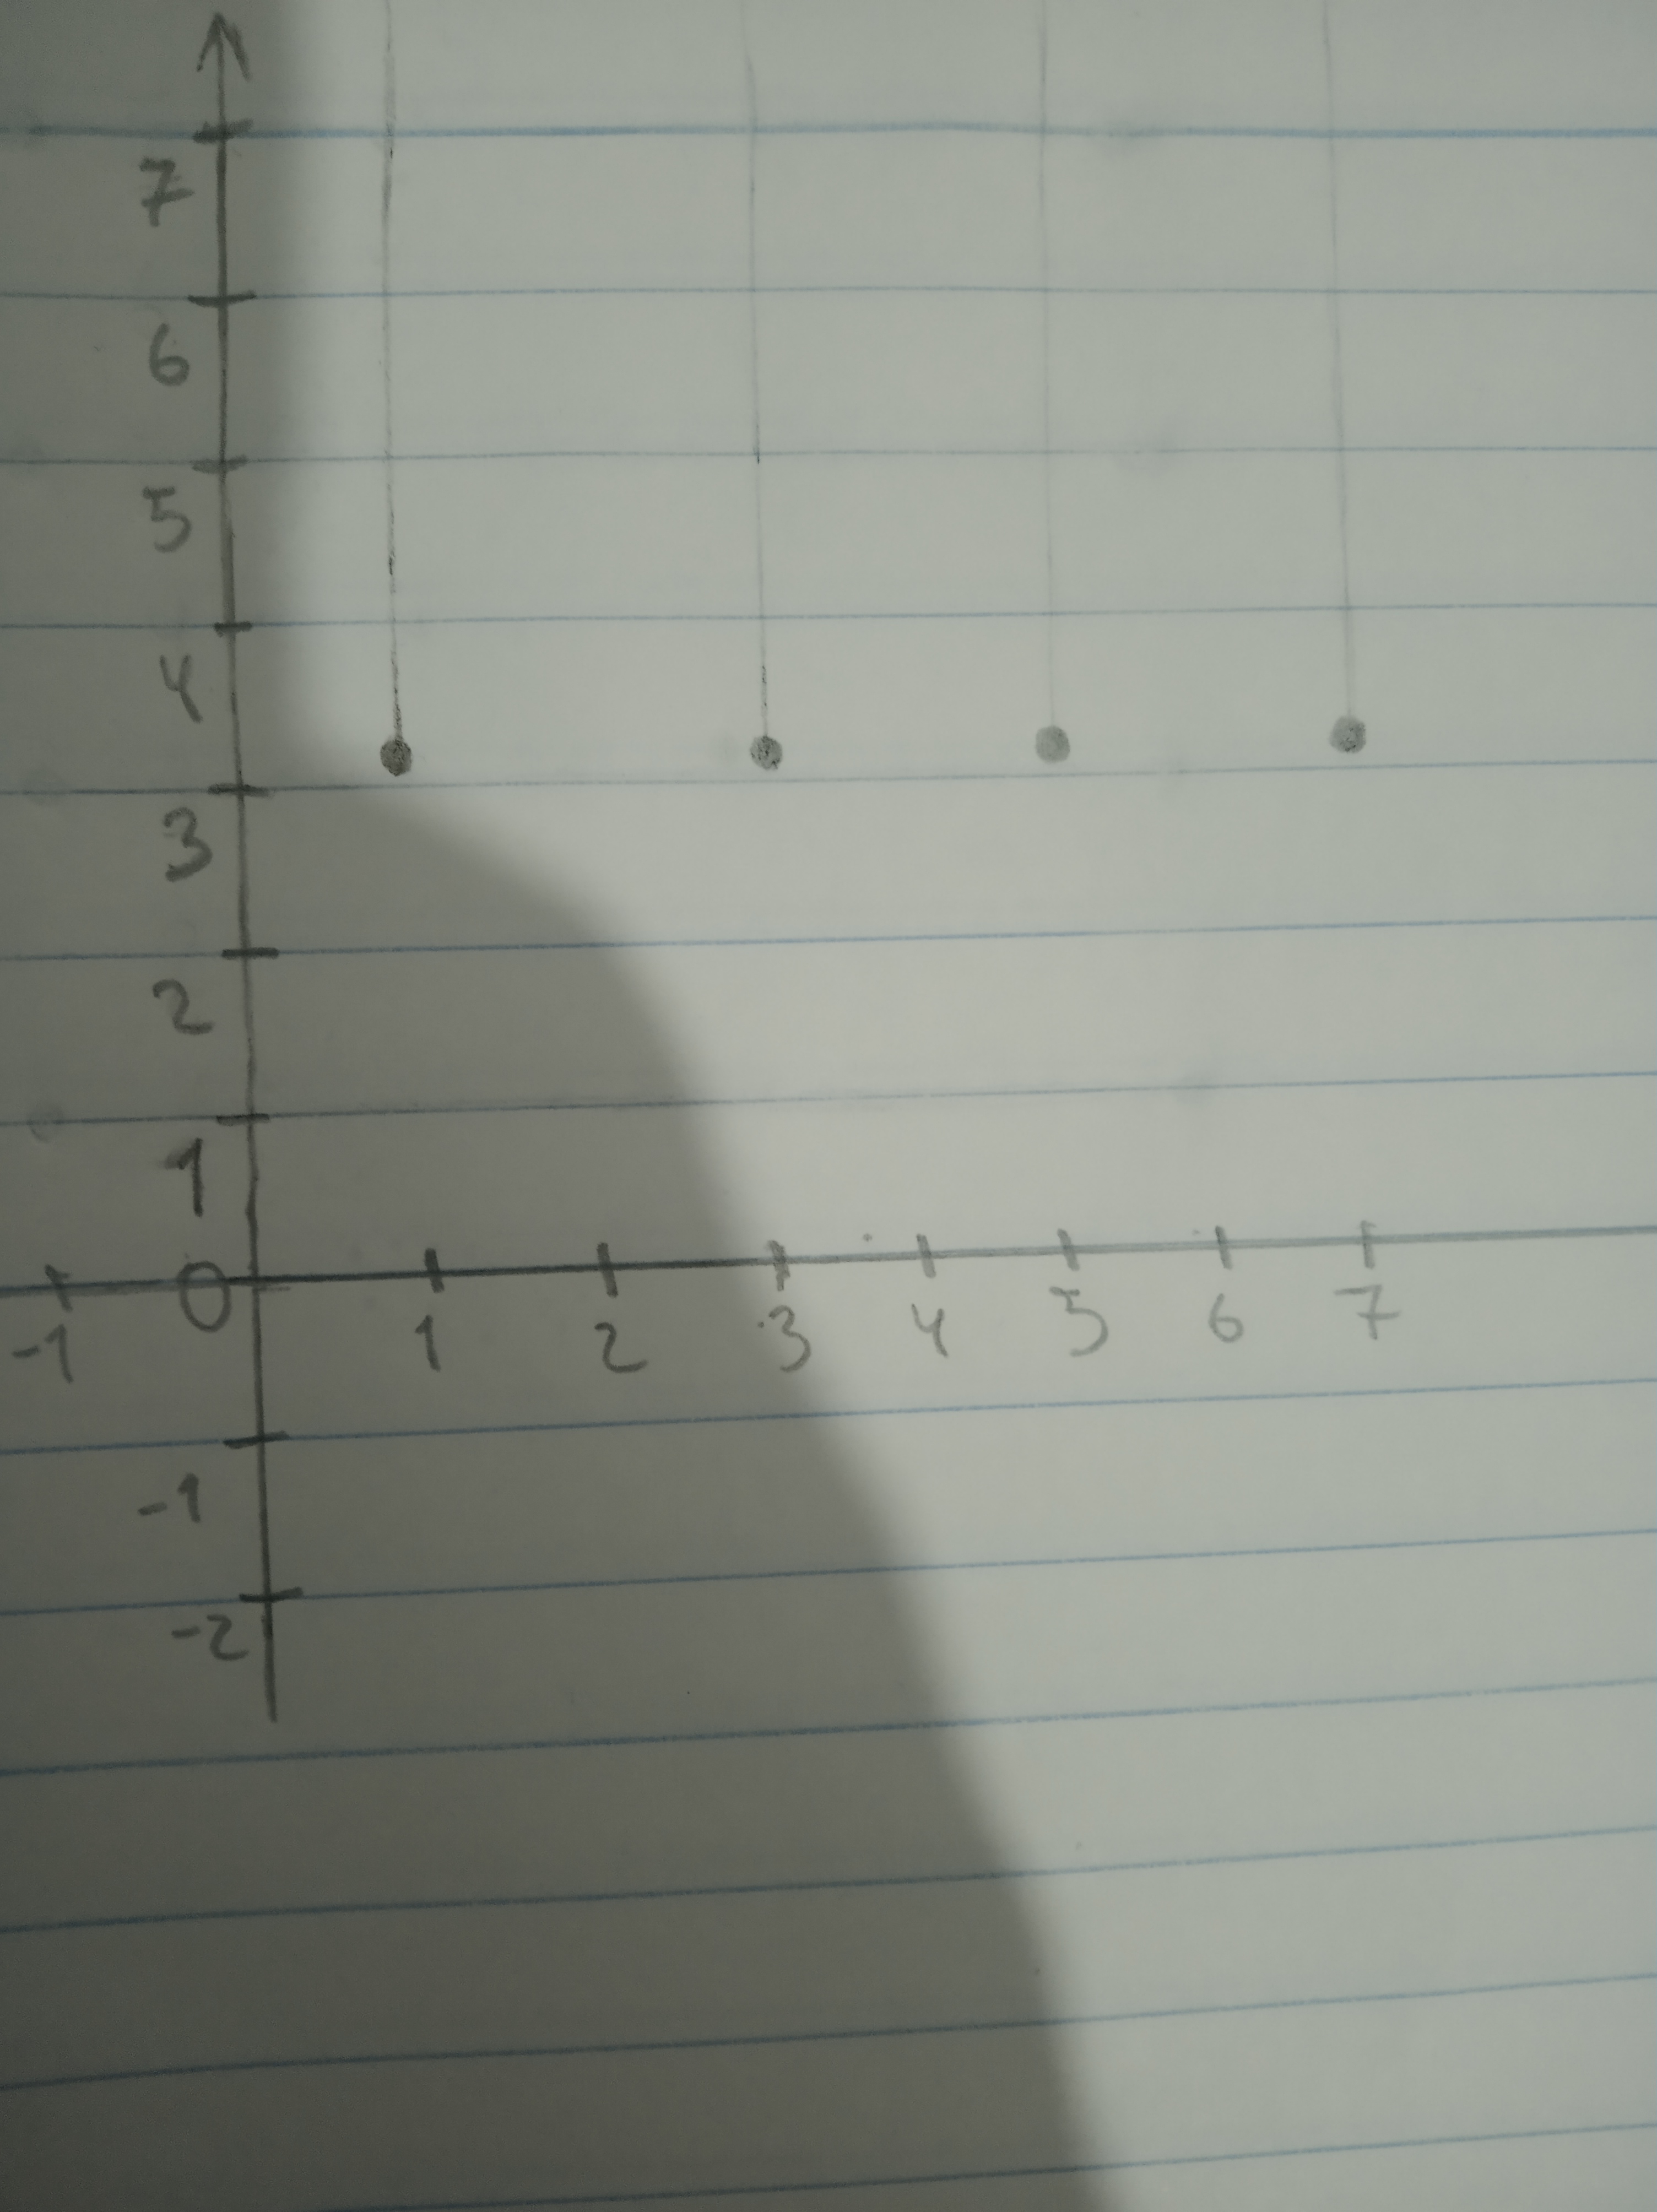 7
6
5
4
3
2
1
0
-1 1 2 3 4 5 6 7
-1
-2